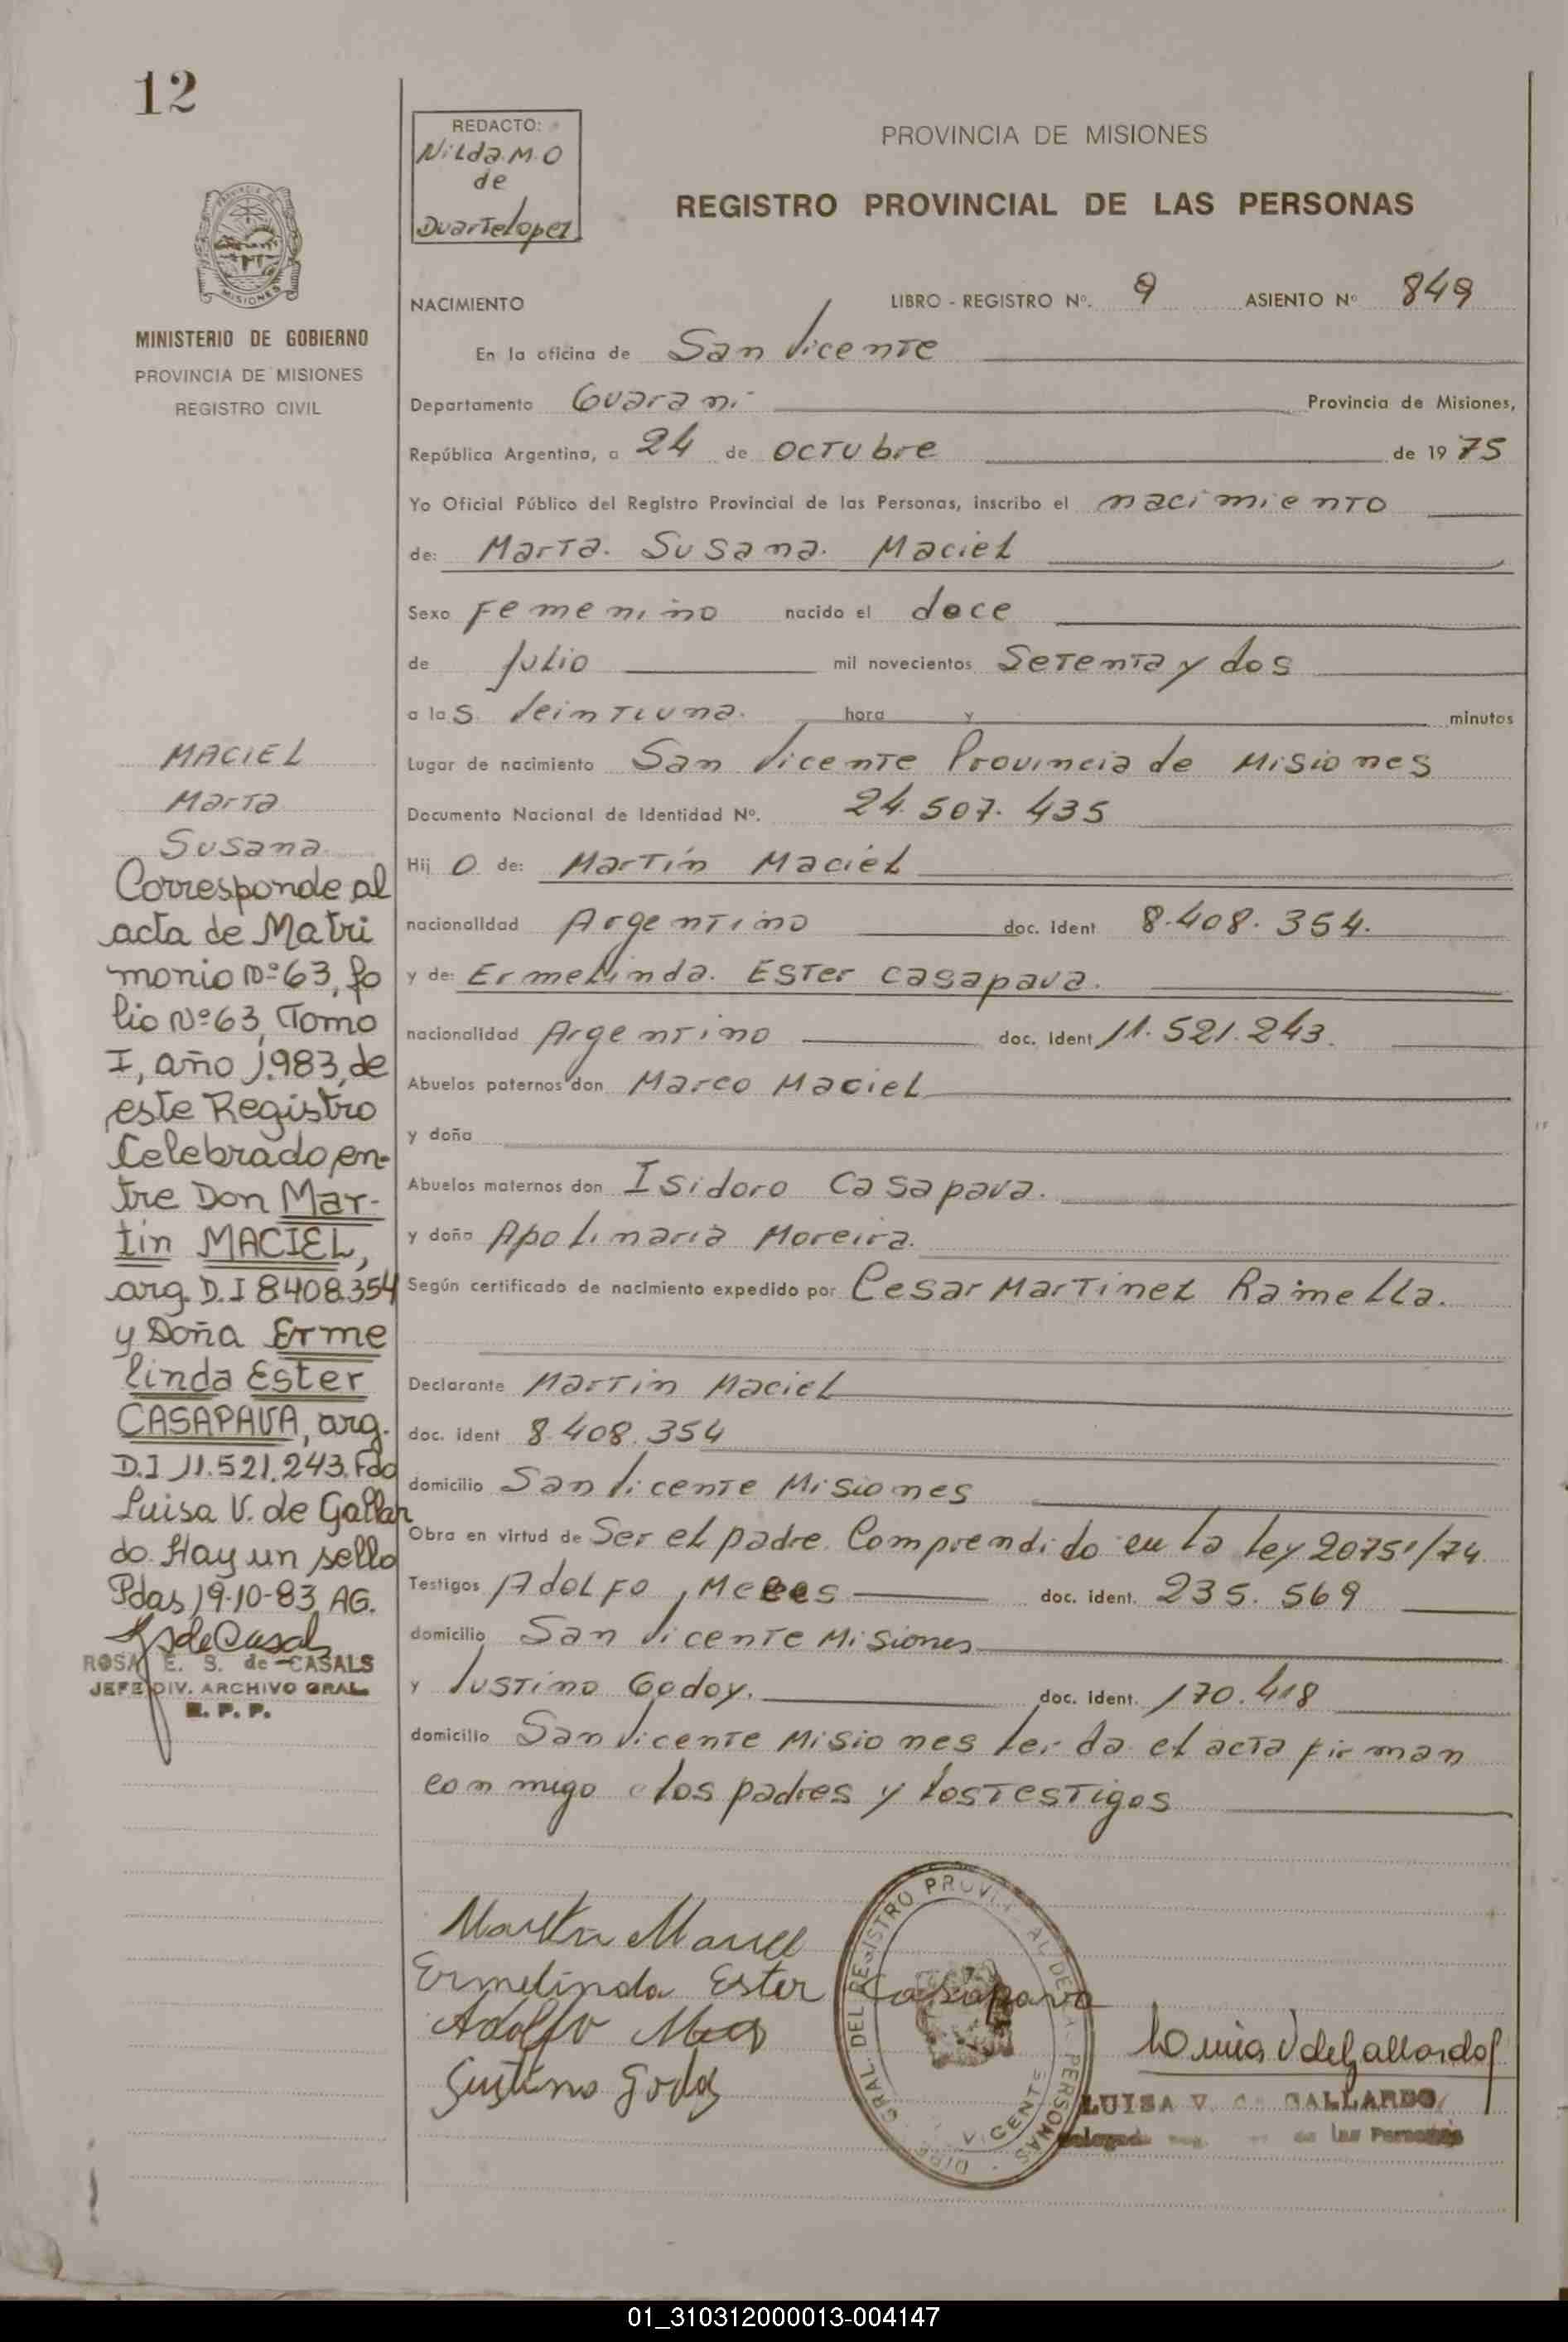 12
REDACTO:
Nilda.M.O
de
Duartelopez
PROVINCIA DE MISIONES
REGISTRO PROVINCIAL DE LAS PERSONAS
MISIONES
MINISTERIO DE GOBIERNO
PROVINCIA DE MISIONES
REGISTRO CIVIL
NACIMIENTO LIBRO - REGISTRO Nº. 9 ASIENTO Nº 849
En la oficina de San Vicente
Departamento Guarani Provincia de Misiones,
República Argentina, a 24 de octubre de 1975
Yo Oficial Público del Registro Provincial de las Personas, inscribo el nacimiento
de: Marta. Susana. Maciel
Sexo Femenino nacido el doce
de Julio mil novecientos Setenta y dos
a las. Veintiuna. hora y minutos
Lugar de nacimiento San Vicente Provincia de Misiones
Documento Nacional de Identidad Nº. 24.507.435
Hij O de: Martín Maciel
nacionalidad Argentino doc. ident 8.408.354.
y de: Ermelinda. Ester Casapava.
nacionalidad Argentino doc. ident 11.521.243.
Abuelos paternos don Marco Maciel
y doña
Abuelos maternos don Isidoro Casapava.
y doña Apolinaria Moreira.
Según certificado de nacimiento expedido por Cesar Martinez Ramella.
Declarante Martin Maciel
doc. ident 8.408.354
domicilio San Vicente Misiones
Obra en virtud de Ser el padre. Comprendido en la ley 20751/74.
Testigos Adolfo, doc. ident. 235.569
domicilio San Vicente Misiones
y Justino Godoy. doc. ident. 170.418
domicilio San Vicente Misiones leida el acta firman
conmigo los padres y los testigos
MACIEL
Marta
Susana
Corresponde al
acta de Matri
monio Nº 63, fo
lio Nº 63, Tomo
I, año 1.983, de
este Registro
Celebrado en-
tre Don Mar-
tin MACIEL,
arg. D.I 8.408.354
y Doña Erme
linda Ester
CASAPAVA, arg.
D.I 11.521.243. Fdo
Luisa V. de Gallar
do. Hay un sello
Pdas, 19-10-83 AG.
ROSA E. S. de CASALS
JEFE DIV. ARCHIVO GRAL.
R. P. P.
Martin Maciel
Ermelinda Ester Casapava
Adolfo
Justino Godoy
Luisa V de Gallardo
LUISA V. GALLARDO
de las Personas
GRAL. DEL REGISTRO PERSONAS
VICENTE
01_310312000013-004147